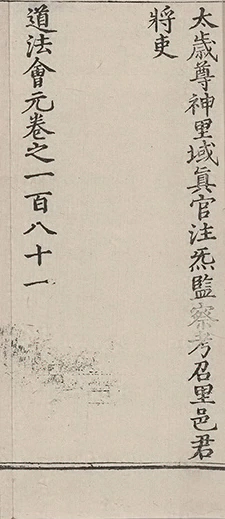 太歲尊神里域眞官注炁監察考召里邑君
將吏
道法會元卷之一百八十一